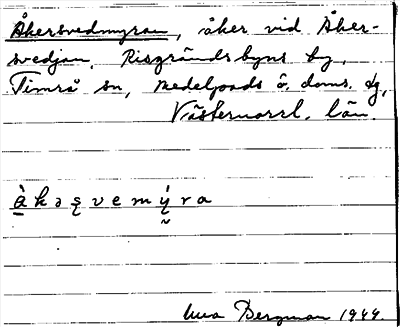 Åkersvedmyran, åker vid Åker-
svedjan, Risgrändsbyns by,
Timrå sn, Medelpads ö. doms. dg,
Västernorrl. län
å̀kəşvemýra
Bergman 1944.